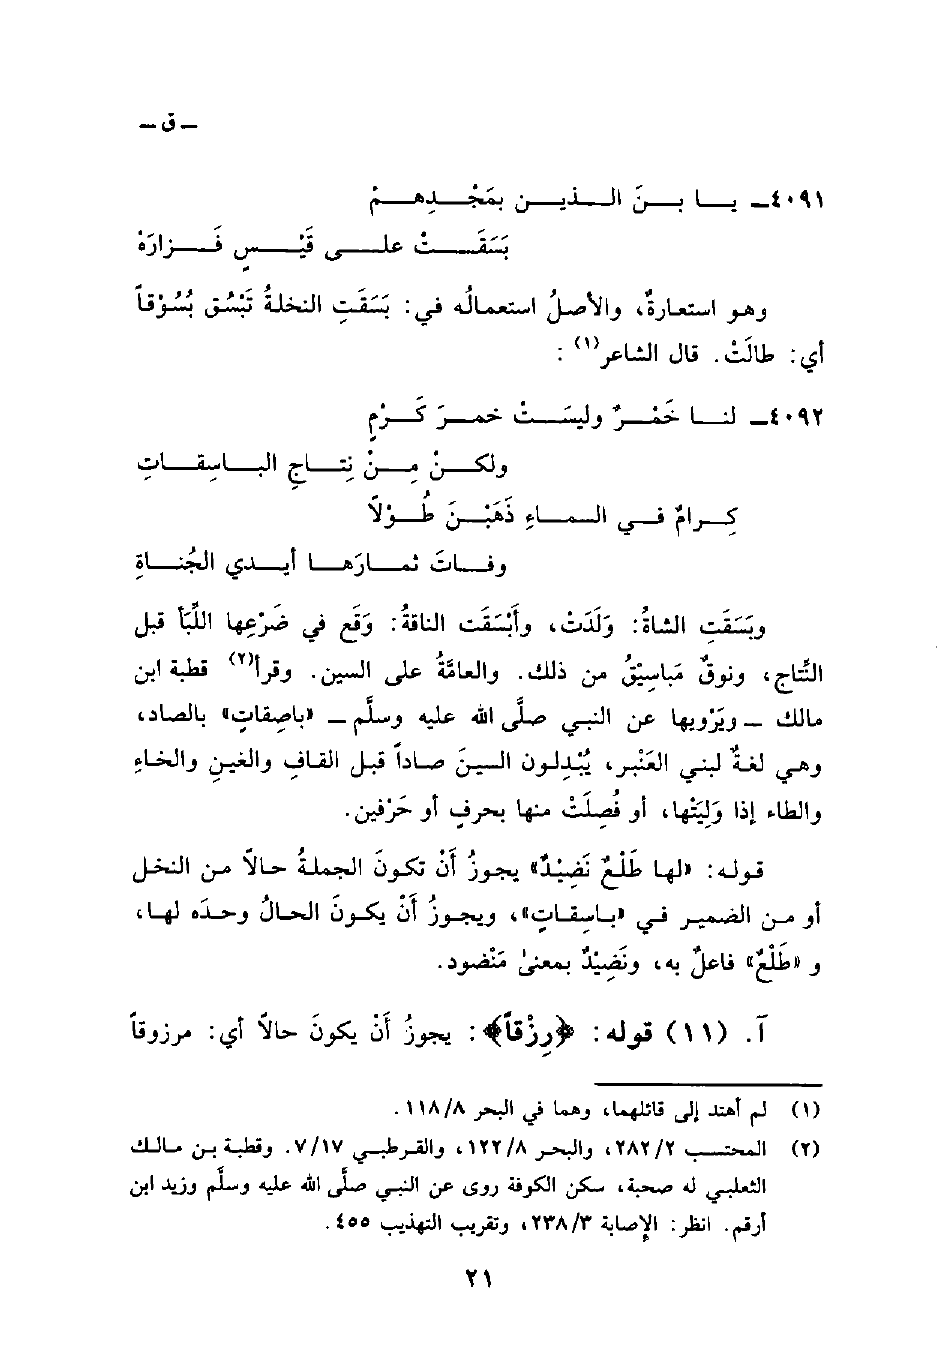 ـ ق ـ
٤٠٩١ـ يـا بـنَ الـذيـن بمَجْـدِهـمْ
بَسَقَـتْ علـى قَيْـسٍ فَـزارَهْ
وهو استعارةٌ، والأصلُ استعمالُه في: بَسَقَتِ النخلةُ تَبْسُق بُسُوْقاً
أي: طالَتْ. قال الشاعر(١) :
٤٠٩٢ـ لنـا خَمْـرٌ وليسَـتْ خمـرَ كَـرْمٍ
ولكـنْ مِـنْ نِتـاجِ البـاسِقـاتِ
كِـرامٌ فـي السمـاءِ ذَهَبْـنَ طُـوْلاً
وفـاتَ ثمـارَهـا أيـدي الجُنـاةِ
وبَسَقَتِ الشاةُ: وَلَدَتْ، وأَبْسَقَت الناقةُ: وَقَع في ضَرْعِها اللِّبَأ قبل
النِّتاج، ونوقٌ مَباسِيْقُ من ذلك. والعامَّةُ على السين. وقرأ(٢) قطبة ابن
مالك ـ ويَرْويها عن النبي صلَّى الله عليه وسلَّم ـ «باصِقاتٍ» بالصاد،
وهي لغةٌ لبني العَنْبر، يُبْدِلون السينَ صاداً قبل القافِ والغينِ والخاءِ
والطاء إذا وَلِيَتْها، أو فُصِلَتْ منها بحرفٍ أو حَرْفين.
قوله: «لها طَلْعٌ نَضِيْدٌ» يجوزُ أَنْ تكونَ الجملةُ حالاً من النخل
أو من الضمير في «باسِقات»، ويجوزُ أَنْ يكونَ الحالُ وحدَه لها،
و «طَلْعٌ» فاعلٌ به، ونَضِيْدٌ بمعنىٰ مَنْضود.
آ. (١١) قوله: ﴿رِزْقاً﴾: يجوزُ أَنْ يكونَ حالاً أي: مرزوقاً
(١) لم أهتد إلى قائلهما، وهما في البحر ١١٨/٨.
(٢) المحتسب ٢٨٢/٢، والبحر ١٢٢/٨، والقرطبي ٧/١٧. وقطبة بن مالك
الثعلبي له صحبة، سكن الكوفة روى عن النبي صلَّى الله عليه وسلَّم وزيد ابن
أرقم. انظر: الإصابة ٢٣٨/٣، وتقريب التهذيب ٤٥٥.
٢١